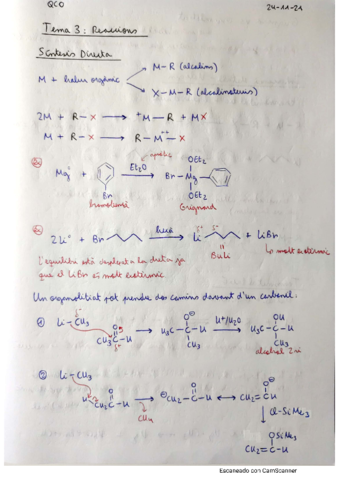 QCO
24-11-21
Tema 3: Reaccions
Síntesis Directa
M + halur orgànic
M-R (alcalins)
X-M-R (alcalinoterris)
2M + R-X → ⁺M-R + MX
M + R-X → R-M⁺⁺-X
Mg + Br → Et₂O Br-Mg
OEt₂
OEt₂
bromobenzè
Grignard
2Li + Br → Li + LiBr
BuLi
molt exotèrmic
L'equilibri està desplaçat a la dreta ja
que el LiBr és molt exotèrmic.
Un organolitiat pot prendre dos camins davant d'un carbonil:
① Li-CH₃
CH₃C-H → H₃C-C-H → H⁺/H₂O H₃C-C-H
O
O⊖
OH
CH₃
CH₃
alcohol 2ari
② Li-CH₃
H-CH₂C-H → ⊖CH₂-C-H ↔ CH₂=C-H
O
O
O⊖
CH₄
Cl-SiMe₃
OSiMe₃
CH₂=C-H
Escaneado con CamScanner